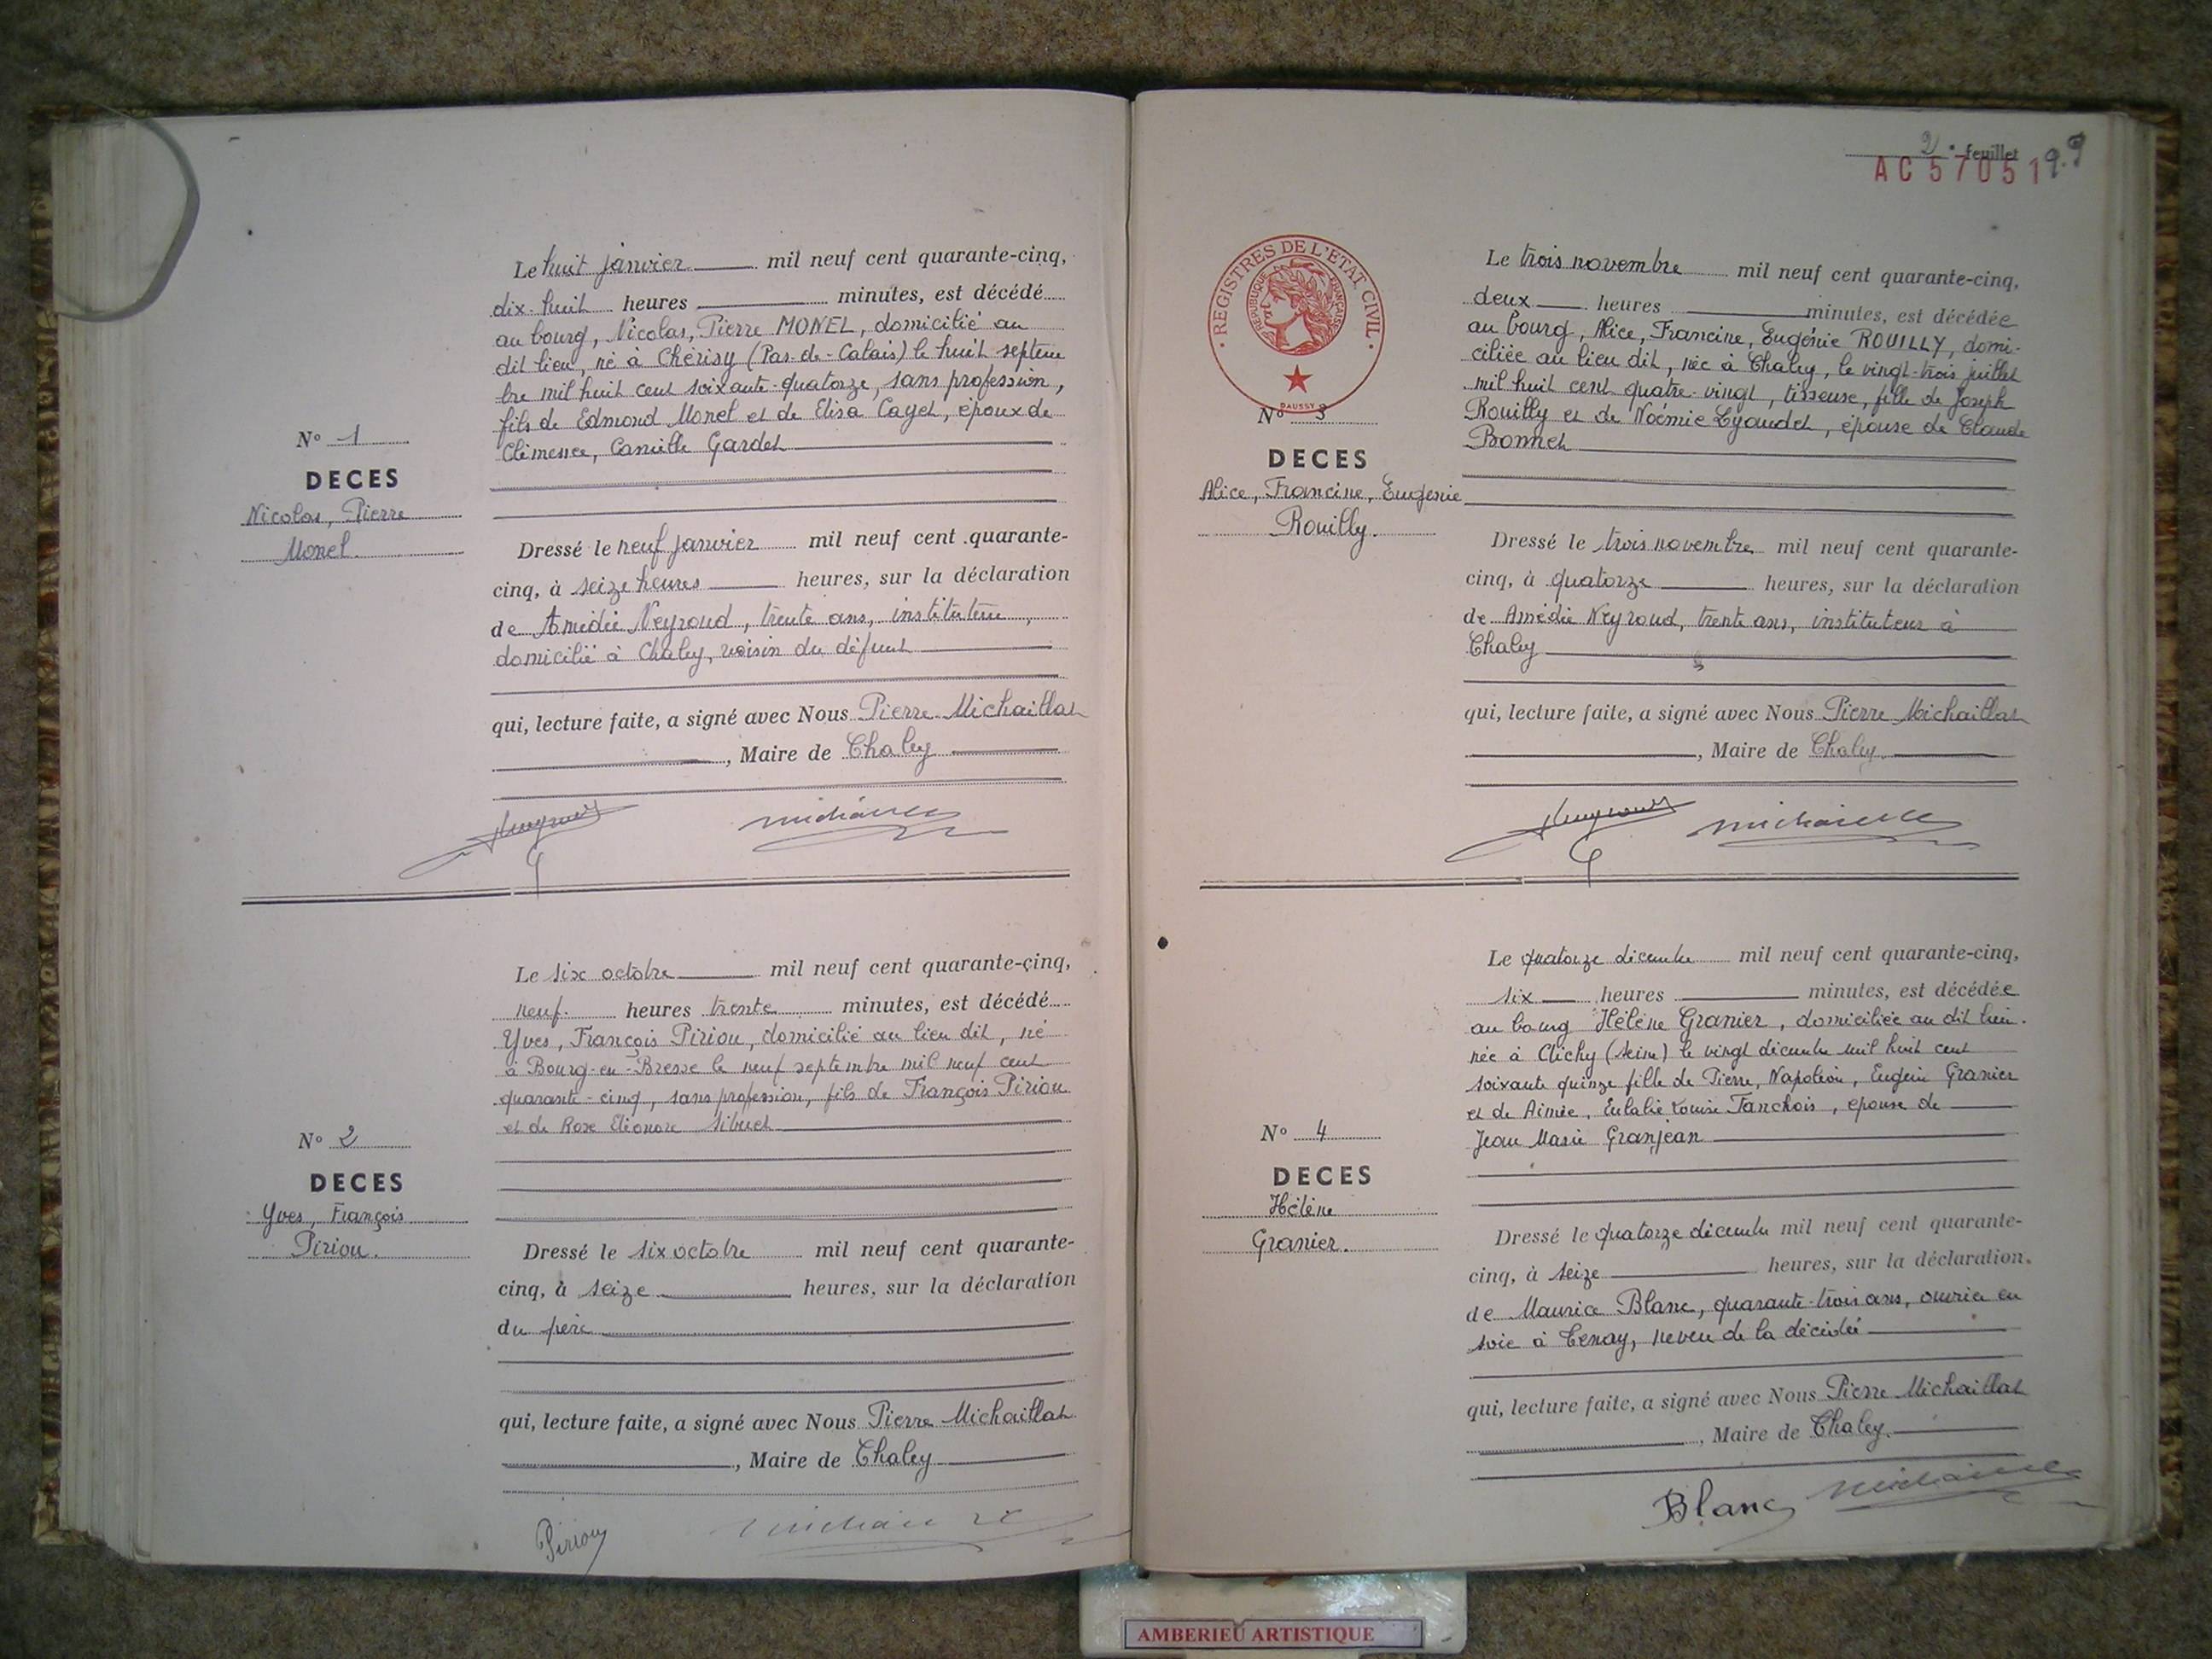 Le huit janvier mil neuf cent quarante-cinq,
dix-huit heures minutes, est décédé
au bourg, Nicolas, Pierre MONEL, domicilié au
dit lieu, né à Chérisy (Pas-de-Calais) le huit septem
bre mil huit cent soixante-quatorze, sans profession,
fils de Edmond Monel et de Elisa Cayet, époux de
Clémence, Camille Gardet
N° 1
DECES
Nicolas, Pierre
Monel.
Dressé le neuf janvier mil neuf cent quarante-
cinq, à seize heures heures, sur la déclaration
de Amédée Neyroud, trente ans, instituteur,
domicilié à Chaley, voisin du défunt
qui, lecture faite, a signé avec Nous Pierre Michaillat
, Maire de Chaley
Le six octobre mil neuf cent quarante-cinq,
neuf heures trente minutes, est décédé
Yves, François Piriou, domicilié au lieu dit, né
à Bourg-en-Bresse le neuf septembre mil neuf cent
quarante-cinq, sans profession, fils de François Piriou
et de Rose Eléonore Sibuet
N° 2
DECES
Yves, François
Piriou.
Dressé le six octobre mil neuf cent quarante-
cinq, à seize heures, sur la déclaration
du père
qui, lecture faite, a signé avec Nous Pierre Michaillat
, Maire de Chaley
Piriou
2e feuillet
AC 57051
REGISTRES DE L'ETAT CIVIL
REPUBLIQUE FRANÇAISE
DAUSSY
Le trois novembre mil neuf cent quarante-cinq,
deux heures minutes, est décédée
au bourg, Alice, Francine, Eugénie ROUILLY, domi-
ciliée au lieu dit, née à Chaley, le vingt-trois juillet
mil huit cent quatre-vingt, tisseuse, fille de Joseph
Rouilly et de Noémie Lyaudet, épouse de Claude
Bonnet
N° 3
DECES
Alice, Francine, Eugénie
Rouilly.
Dressé le trois novembre mil neuf cent quarante-
cinq, à quatorze heures, sur la déclaration
de Amédée Neyroud, trente ans, instituteur à
Chaley
qui, lecture faite, a signé avec Nous Pierre Michaillat
, Maire de Chaley.
Le quatorze décembre mil neuf cent quarante-cinq,
six heures minutes, est décédée
au bourg Hélène Granier, domiciliée au dit lieu.
née à Clichy (Seine) le vingt décembre mil huit cent
soixante quinze fille de Pierre, Napoléon, Eugène Granier
et de Aimée, Eulalie Louise Tanchois, épouse de
Jean Marie Granjean
N° 4
DECES
Hélène
Granier.
Dressé le quatorze décembre mil neuf cent quarante-
cinq, à seize heures, sur la déclaration
de Maurice Blanc, quarante-trois ans, ouvrier en
soie à Tenay, neveu de la décédée
qui, lecture faite, a signé avec Nous Pierre Michaillat
, Maire de Chaley.
Blanc
AMBERIEU ARTISTIQUE